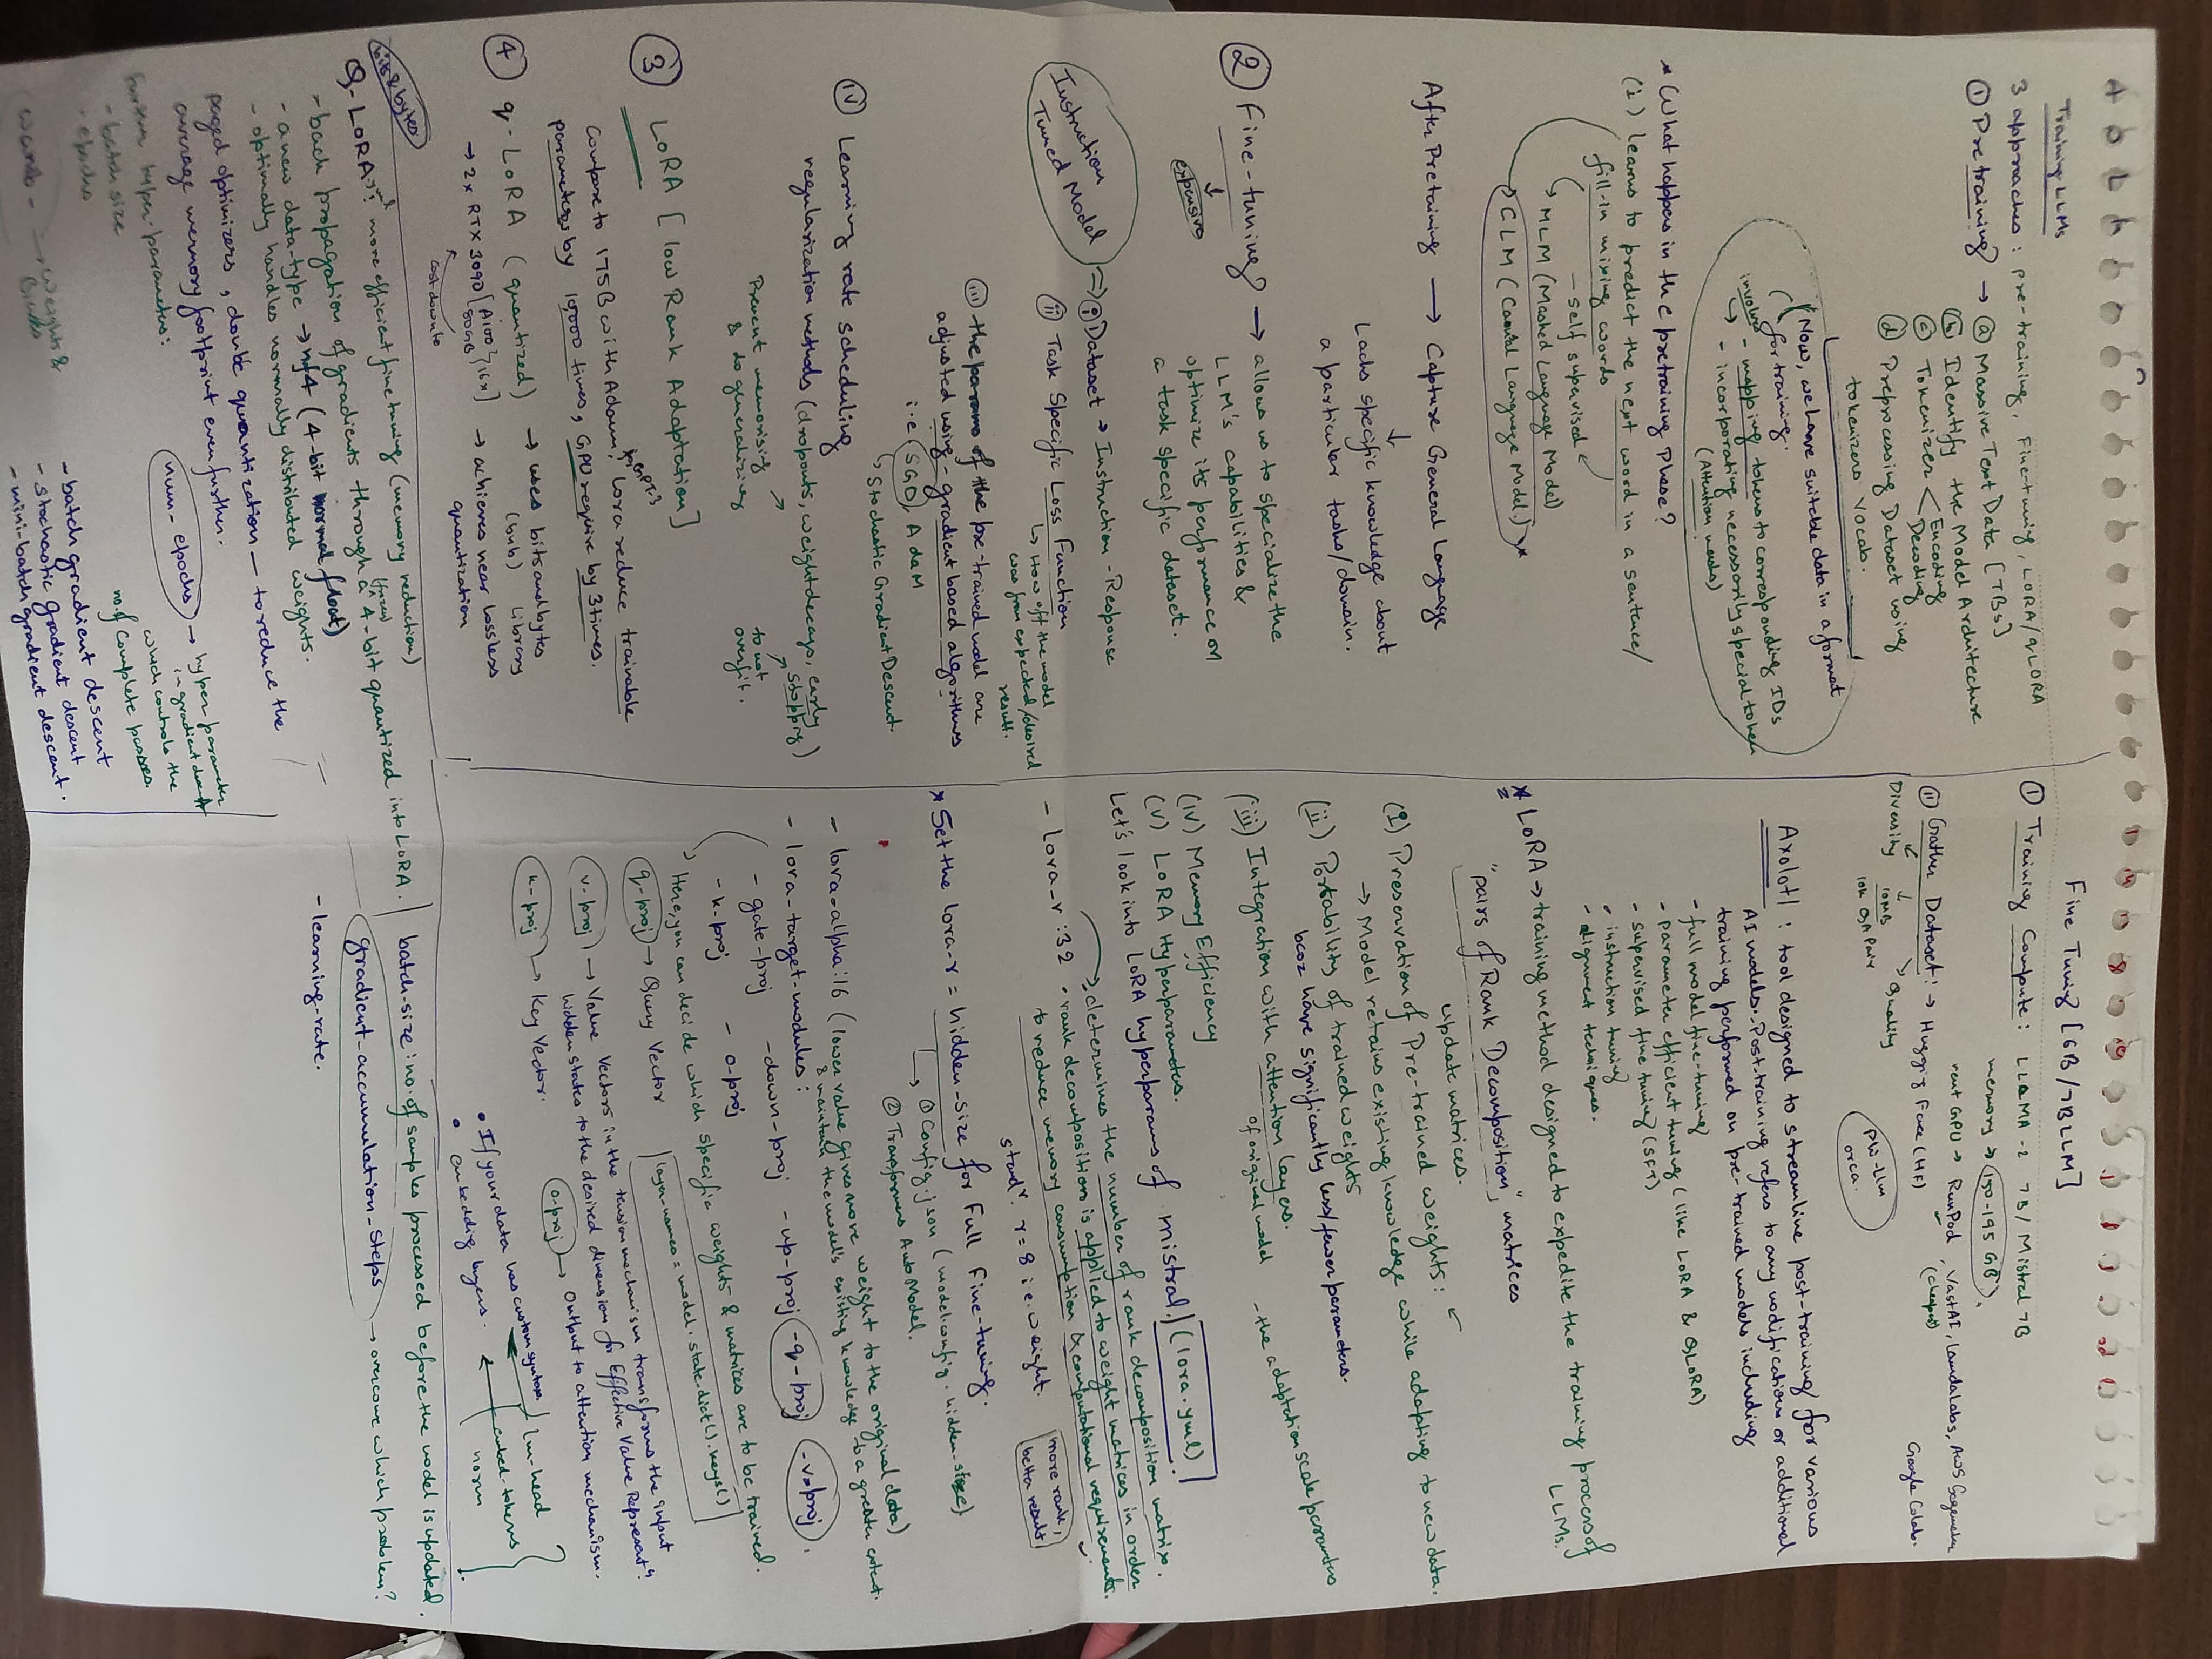 Training LLMs
3 approaches: pre-training, Fine-tuning, LoRA/qLoRA
① Pretraining → ⓐ Massive Text Data [TBs]
ⓑ Identify the Model Architecture
ⓒ Tokenizer < Encoding
Decoding
ⓓ Preprocessing Dataset using
tokenizers vocab.
Now, we have suitable data in a format
for training.
involves - mapping tokens to corresponding IDs
→ - incorporating necessarily special token
(Attention masks)
* What happens in the pretraining Phase?
(i) learns to predict the next word in a sentence/
fill-in missing words - self supervised
↳ MLM (Masked Language Model)
→ CLM (Causal Language Model.) *
After Pretaining → Capture General Language
↓
Lacks specific knowledge about
a particular tasks/domain.
② Fine-tuning → allows us to specialize the
↓
expensive
LLM's capabilities &
optimize its performance on
a task specific dataset.
Instruction
Tuned Model
⇒ ⓘ Dataset → Instruction-Response
ⓘⓘ Task Specific Loss Function
↳ How off the model
was from expected/desired
result.
ⓘⓘⓘ the params of the pre-trained model are
adjusted using gradient based algorithms
i.e (SGD), AdaM
↳ Stochastic Gradient Descent
ⓘⓥ Learning rate scheduling
regularization methods (dropouts, weight decays, early
stopping)
Prevent memorising
& do generalizing
to not
overfit.
③ LoRA [low Rank Adaptation]
compare to 175B with Adam, lora reduce trainable
parameters by 10000 times, GPU require by 3 times.
④ q-LoRA (quantized) → uses bits and bytes
(bnb) library
→ 2x RTX 3090 → achieves near lossless
quantization
cost down to
bits & bytes
Q-LoRA: more efficient fine tuning (memory reduction)
- back propagation of gradients through a 4-bit quantized into LoRA.
- a new data-type → nf4 (4-bit normal float)
- optimally handles normally distributed weights.
paged optimizers, double quantization - to reduce the
average memory footprint even further.
hyper-parameters:
- batch size
- epochs
num-epochs → hyper parameter
in gradient descent
which controls the
no. of complete passes
- batch gradient descent
- stochastic gradient descent
- mini-batch gradient descent.
wandb - → Weights &
Biases
Fine Tuning [6B/7B LLM]
① Training Compute: LLaMA-2 7B/Mistral 7B
memory → 150-195 GB.
rent GPU → RunPod, VastAI, LambdaLabs, AWS Sagemaker
(cheapest)
Google Colab.
② Gather Dataset: → Hugging Face (HF)
Diversity
10MB
10K QA Pair
Quality
orca.
Axolotl: tool designed to streamline post-training for various
AI models. Post-training refers to any modifications or additional
training performed on pre-trained models including
- full model fine-tuning
- parameter efficient tuning (like LoRA & QLoRA)
- supervised fine tuning (SFT)
- instruction tuning
- alignment techniques.
* LoRA → training method designed to expedite the training process of
LLMs.
"pairs of Rank Decomposition" matrices
update matrices.
(i) Preservation of Pre-trained weights:
→ Model retains existing knowledge while adapting to new data.
(ii) Portability of trained weights
bcoz have significantly less/fewer parameters.
(iii) Integration with attention layers. - the adaptation scale parameters
of original model
(iv) Memory Efficiency
(v) LoRA Hyperparametes.
Let's look into LoRA hyperparams of mistral. (lora.yml)
- lora-r: 32 → determines the number of rank decomposition matrix.
• rank decomposition is applied to weight matrices in order
to reduce memory consumption & computational requirements.
stand r. r = 8 i.e. weight.
more rank,
better result
* Set the lora-r = hidden-size for full fine-tuning.
↳ ① Config.json (model.config.hidden-size)
② Transformers AutoModel.
- lora-alpha: 16 (lower value gives more weight to the original data)
& maintain the model's existing knowledge to a greater extent.
- lora-target-modules:
- gate-proj - down-proj - up-proj - q-proj - v-proj.
- k-proj - o-proj
→ Here, you can decide which specific weights & matrices are to be trained.
layer names = model.state_dict().keys()
q-proj → Query Vector
v-proj → Value Vectors in the tension mechanism transforms the input
hidden states to the desired dimension for Effective Value Represent.
k-proj → Key Vector. o-proj → Output to attention mechanism.
• If your data has custom syntax, lm-head
• embedding layers. ← embed-tokens
norm
batch-size: no. of samples processed before the model is updated.
gradient-accumulation-steps → overcome which problem?
- learning-rate.